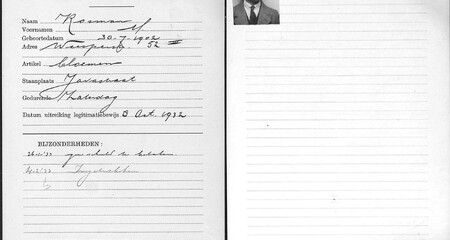 Naam Rosman
Voornamen M
Geboortedatum 30-7-1902
Adres Weesperstr 52
Artikel bloemen
Staanplaats Javastraat
Gedurende Zaterdag
Datum uitreiking legitimatiebewijs 3 Oct. 1932
BIJZONDERHEDEN:
te betalen.
Ingetrokken